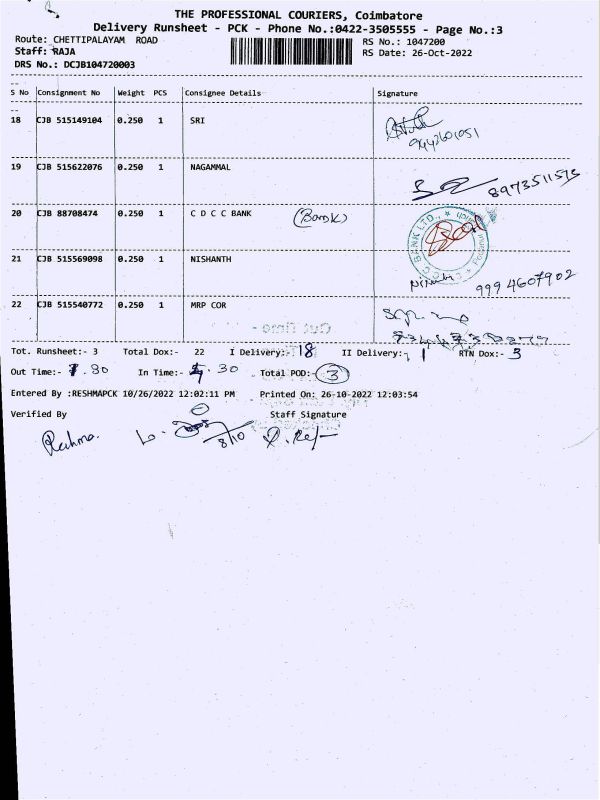 THE PROFESSIONAL COURIERS, Coimbatore
Delivery Runsheet - PCK - Phone No.:0422-3505555 - Page No.:3
Route: CHETTIPALAYAM ROAD
RS No.: 1047200
Staff: RAJA
RS Date: 26-Oct-2022
DRS No.: DCJB104720003
S No Consignment No Weight PCS Consignee Details Signature
18 CJB 515149104 0.250 1 SRI
9442601051
19 CJB 515622076 0.250 1 NAGAMMAL
8973511573
20 CJB 88708474 0.250 1 C D C C BANK (Bank)
21 CJB 515569098 0.250 1 NISHANTH
999 4607902
22 CJB 515540772 0.250 1 MRP COR
Tot. Runsheet:- 3 Total Dox:- 22 I Delivery:- 18 II Delivery:- 1 RTN Dox:- 3
Out Time:- 1.80 In Time:- 4.30 Total POD:- 3
Entered By :RESHMAPCK 10/26/2022 12:02:11 PM Printed On: 26-10-2022 12:03:54
Verified By Staff Signature